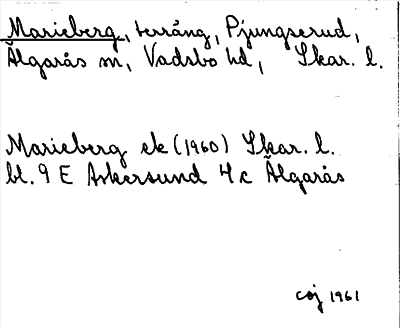 Marieberg, terräng, Pjungserud,
Älgarås sn, Vadsbo hd, Skar. l.
Marieberg ek (1960) Skar. l.
bl. 9 E Askersund 4c Älgarås
1961